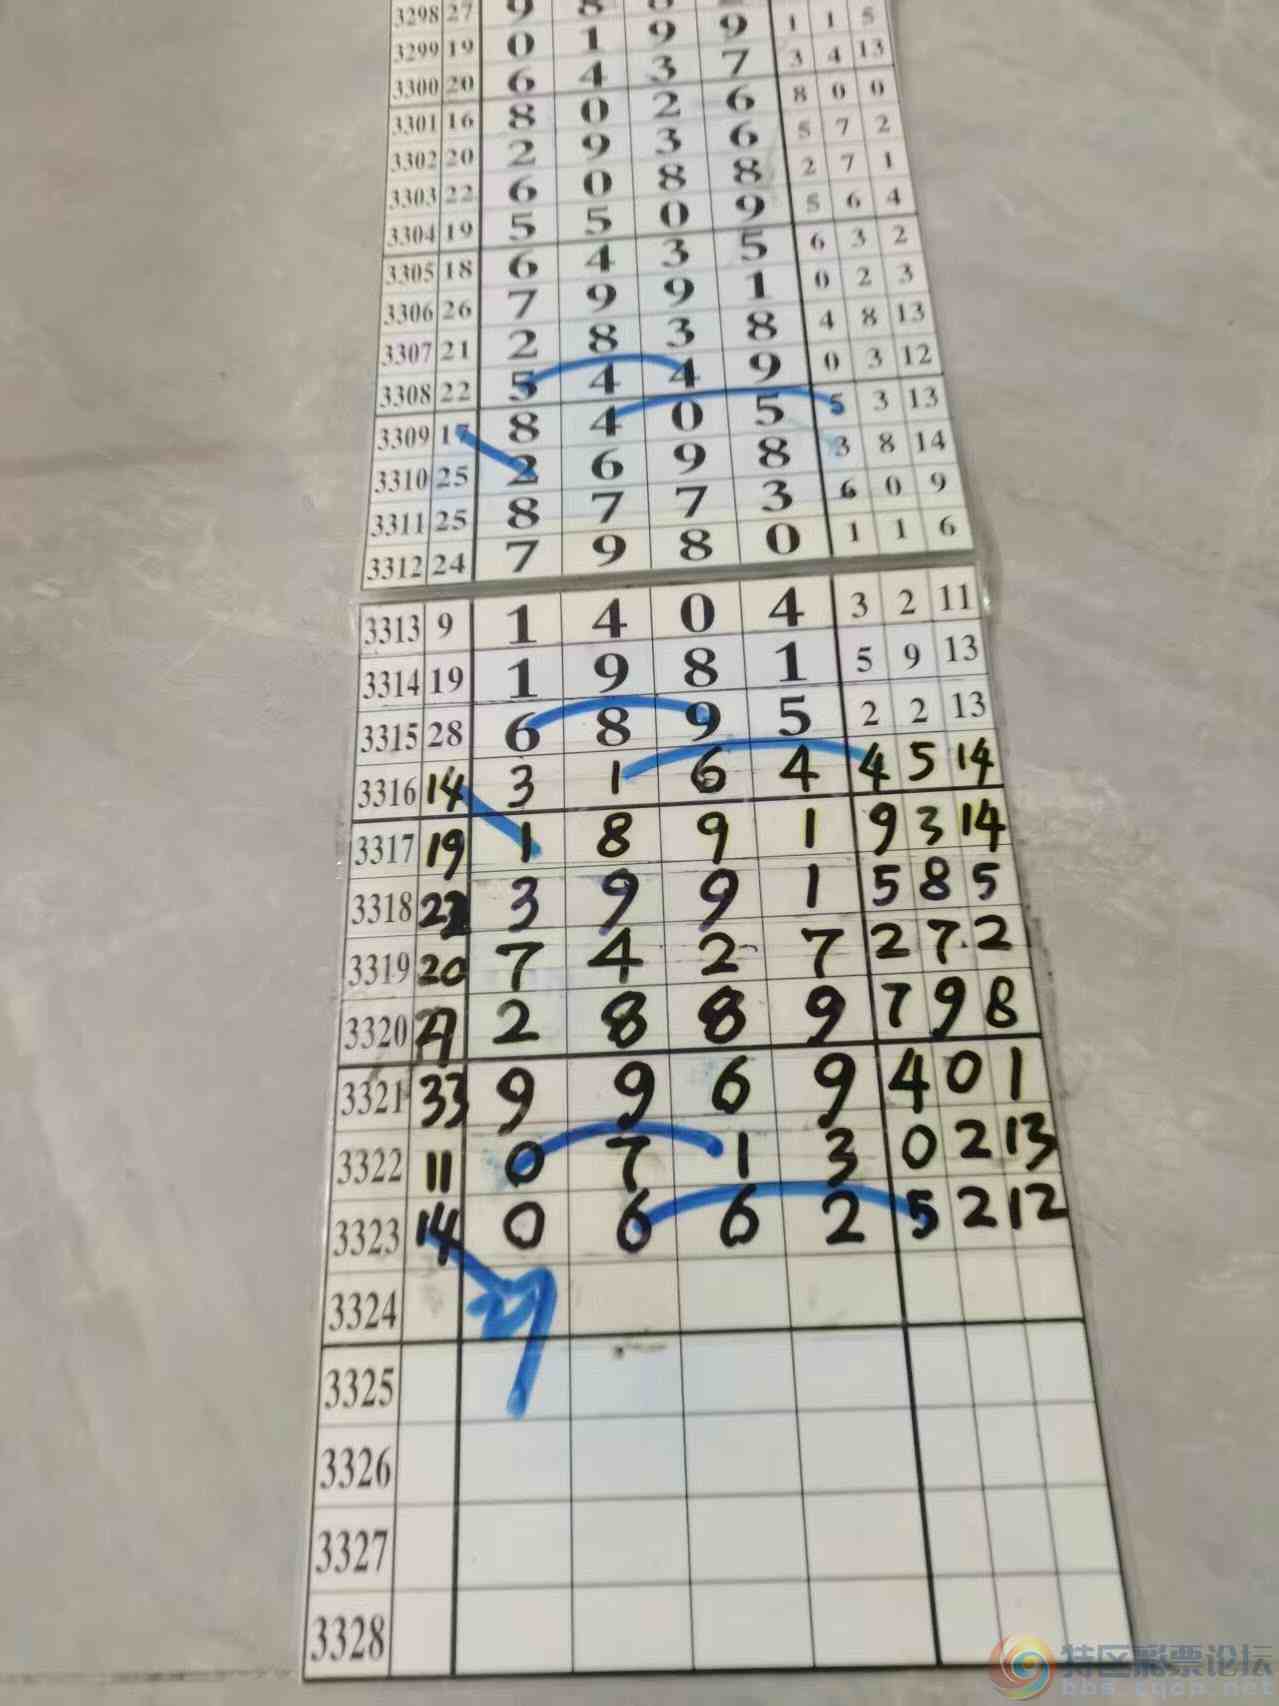 3298 27 9 8 1 1 5
3299 19 0 1 9 9 3 4 13
3300 20 6 4 3 7 8 0 0
3301 16 8 0 2 6 5 7 2
3302 20 2 9 3 6 2 7 1
3303 22 6 0 8 8 5 6 4
3304 19 5 5 0 9 6 3 2
3305 18 6 4 3 5 0 2 3
3306 26 7 9 9 1 4 8 13
3307 21 2 8 3 8 0 3 12
3308 22 5 4 4 9 5 3 13
3309 17 8 4 0 5 3 8 14
3310 25 2 6 9 8 6 0 9
3311 25 8 7 7 3 1 1 6
3312 24 7 9 8 0
3313 9 1 4 0 4 3 2 11
3314 19 1 9 8 1 5 9 13
3315 28 6 8 9 5 2 2 13
3316 14 3 1 6 4 4 5 14
3317 19 1 8 9 1 9 3 14
3318 22 3 9 9 1 5 8 5
3319 20 7 4 2 7 2 7 2
3320 27 2 8 8 9 7 9 8
3321 33 9 9 6 9 4 0 1
3322 11 0 7 1 3 0 2 13
3323 14 0 6 6 2 5 2 12
3324
3325
3326
3327
3328
特区彩票论坛
bbs.tqcp.net